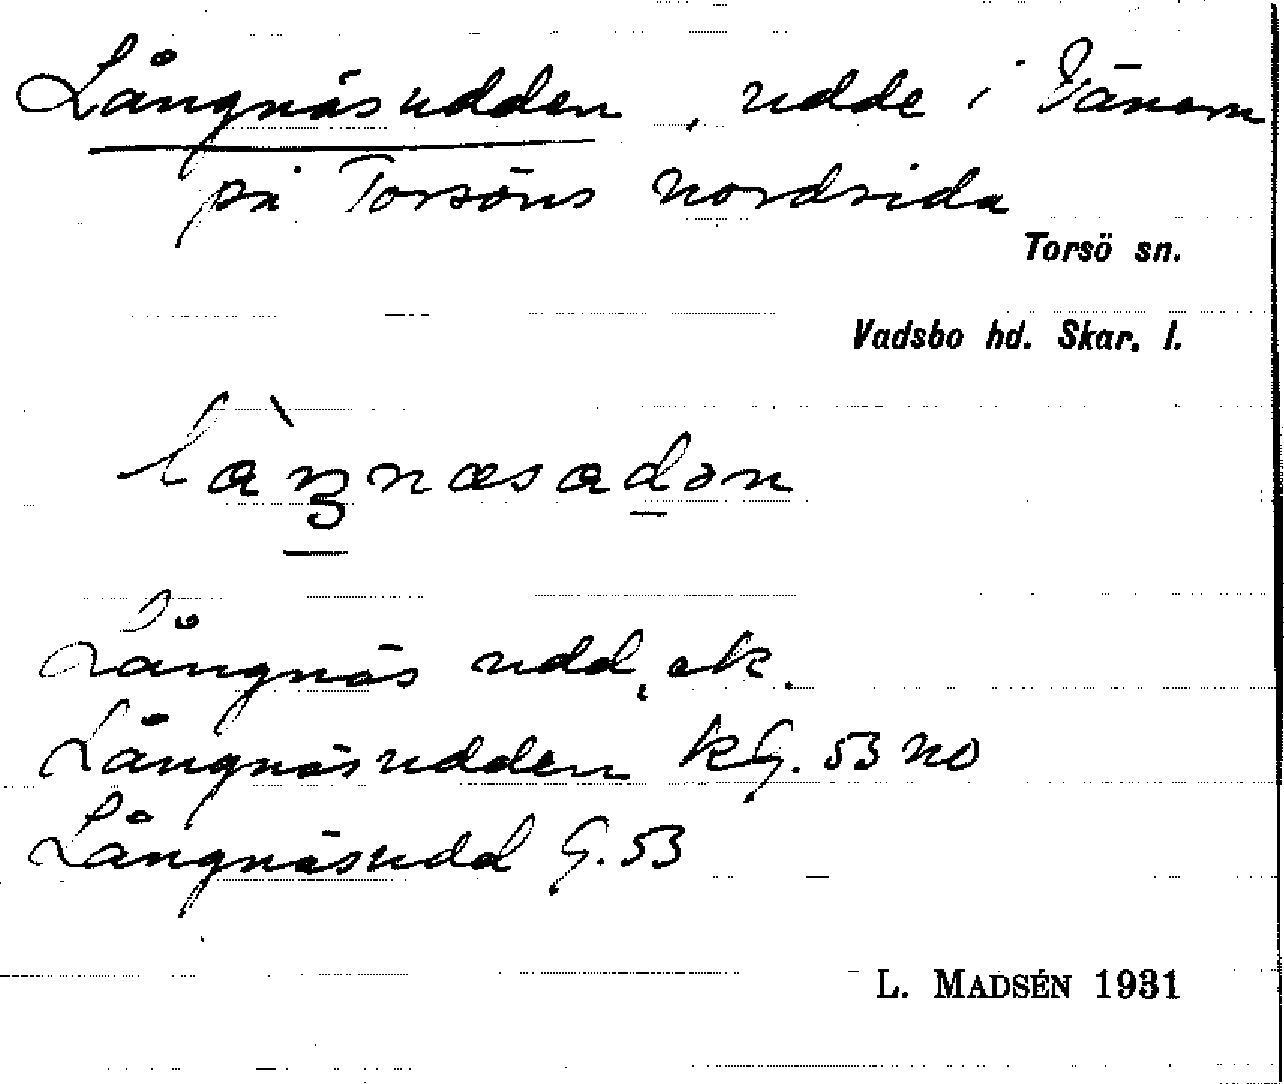 Långnäsudden, udde i Vänern
på Torsöns nordsida
Torsö sn.
Vadsbo hd. Skar. l.
Långnäs udd, ek.
Långnäsudden KG. 53 NO
Långnäsudd G. 53
L. MADSÉN 1931